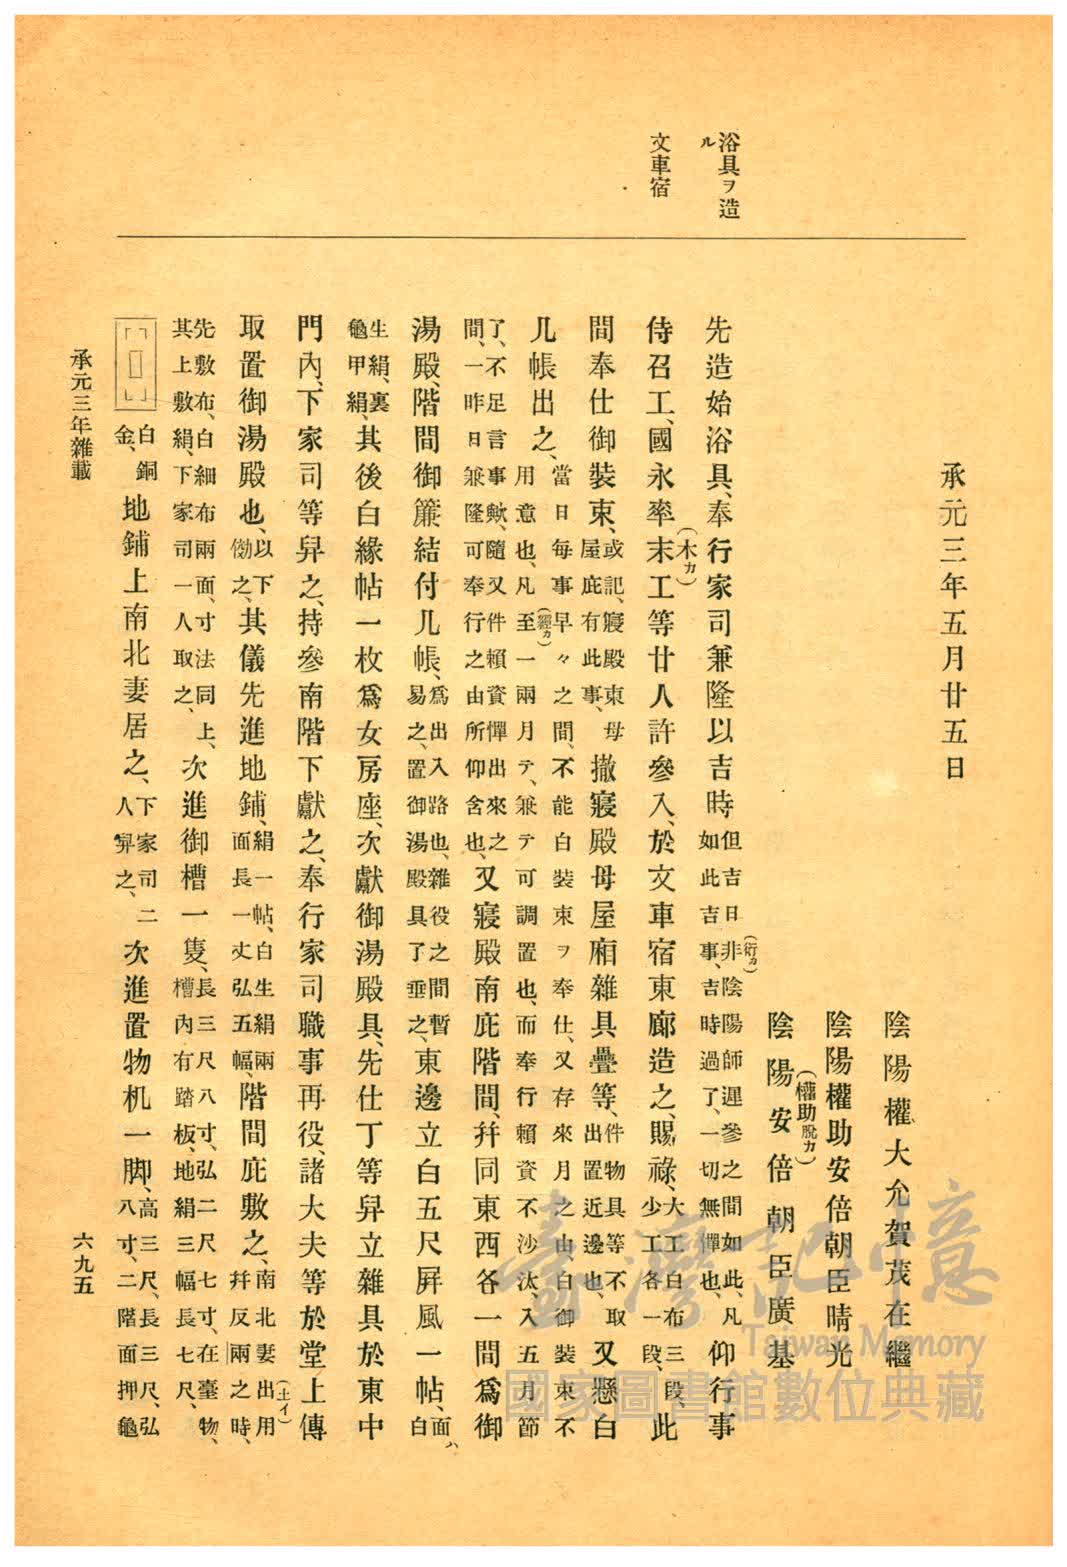 浴具ヲ造ル
文車宿
承元三年五月廿五日
陰陽權大允賀茂在繼
陰陽權助安倍朝臣晴光
(權助脱カ)
陰陽安倍朝臣廣基
先造始浴具、奉行家司兼隆以吉時但吉日非(衍カ)陰陽師遲參之間如此、凡如此吉事、吉時過了、一切無憚也、仰行事
侍召工、國永率末(木カ)工等廿人許參入、於文車宿東廊造之、賜祿、大工白布三段、少工各一段、此
間奉仕御裝束、或記、寢殿東母屋庇有此事、撤寢殿母屋廂雜具疊等、件物具等不取出置近邊也、又懸白
几帳出之、當日每事早々之間、不能白裝束ヲ奉仕、又存來月之由、白御裝束不用意也、凡至(經カ)一兩月テ、兼テ可調置也、而奉行賴資不沙汰、入五月節
了、不足言事歟、隨又件賴資憚出來之間、一昨日兼隆可奉行之由所仰含也、又寢殿南庇階間、幷同東西各一間爲御
湯殿、階間御簾結付几帳、爲出入路也、雜役之間暫易之、置御湯殿具了垂之、東邊立白五尺屛風一帖、面ハ白
生絹、裏龜甲絹、其後白緣帖一枚爲女房座、次獻御湯殿具、先仕丁等舁立雜具於東中
門內、下家司等舁之、持參南階下獻之、奉行家司職事再役、諸大夫等於堂上(土イ)傳
取置御湯殿也、以下倣之、其儀先進地鋪、絹一帖、白生絹兩面長一丈弘五幅、階間庇敷之、南北妻出用幷反兩之時、
先敷布、白細布兩面、寸法同上、其上敷絹、下家司一人取之、次進御槽一隻、長三尺八寸、弘二尺七寸、在臺物、槽內有踏板、地絹三幅長七尺、
白銅金、地鋪上南北妻居之、下家司二人舁之、次進置物机一脚、高三尺、長三尺、弘八寸、二階面押龜
承元三年雜載
六九五
臺灣記憶
Taiwan Memory
國家圖書館數位典藏